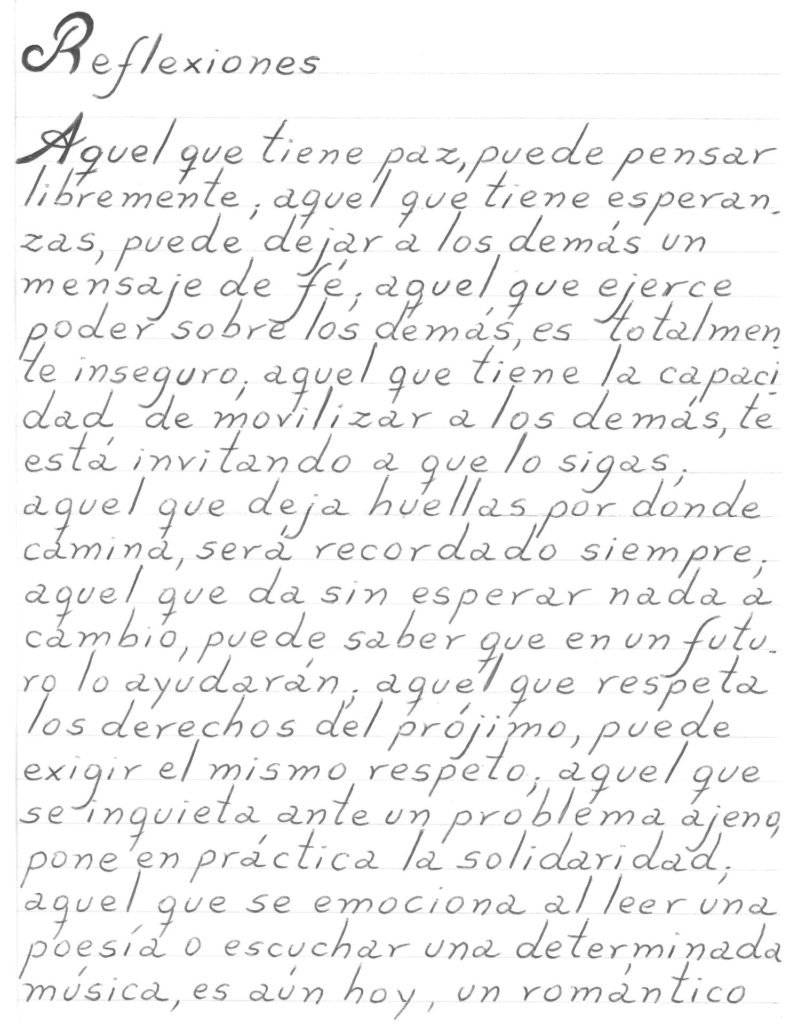 Reflexiones
Aquel que tiene paz, puede pensar
libremente; aquel que tiene esperan-
zas, puede dejar a los demás un
mensaje de fé; aquel que ejerce
poder sobre los demás, es totalmen
te inseguro; aquel que tiene la capaci
dad de movilizar a los demás, te
está invitando a que lo sigas;
aquel que deja huellas por donde
camina, será recordado siempre;
aquel que da sin esperar nada a
cambio, puede saber que en un futu-
ro lo ayudarán; aquel que respeta
los derechos del prójimo, puede
exigir el mismo respeto; aquel que
se inquieta ante un problema ajeno,
pone en práctica la solidaridad;
aquel que se emociona al leer una
poesía o escuchar una determinada
música, es aún hoy, un romántico